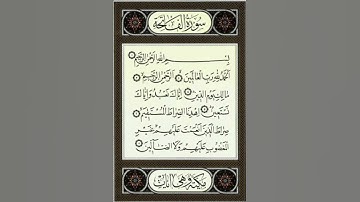 سورة الفاتحة
بسم الله الرحمن الرحيم
الحمد لله رب العالمين الرحمن الرحيم
مالك يوم الدين إياك نعبد وإياك
نستعين اهدنا الصراط المستقيم
صراط الذين أنعمت عليهم غير
المغضوب عليهم ولا الضالين
مكية وهي آيات